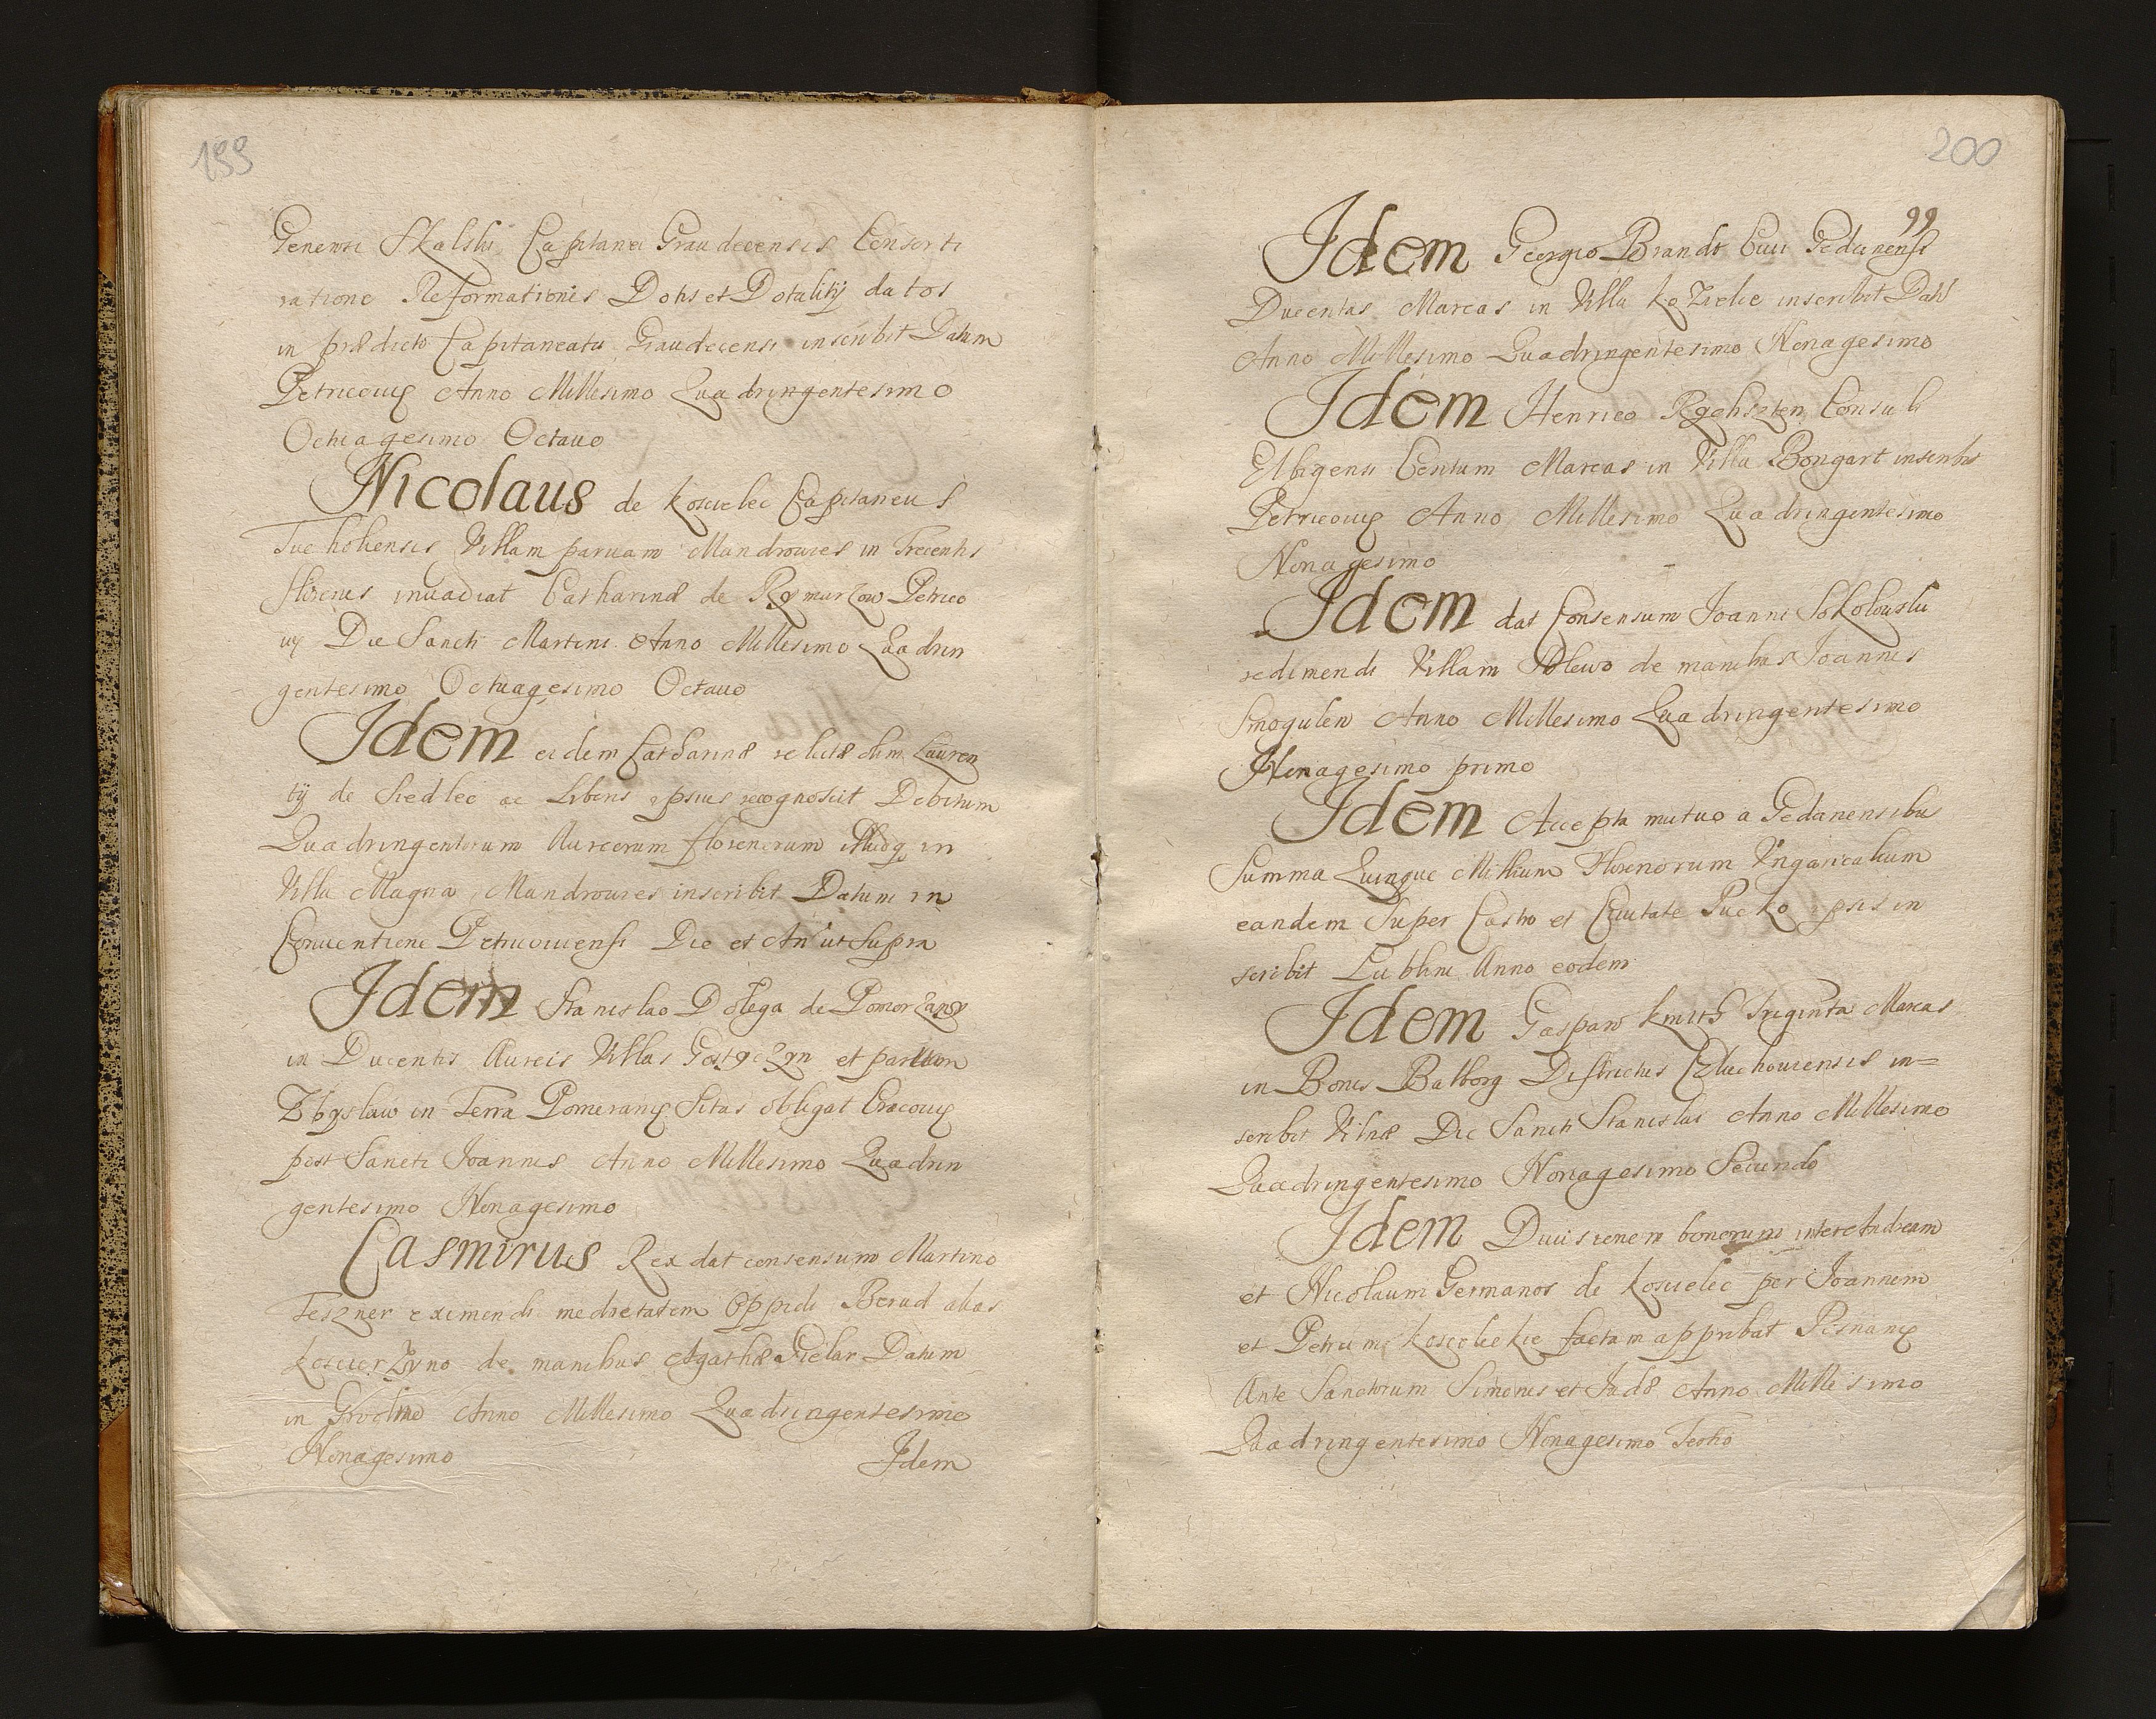 199
Generosi Skalski Capitanei Graudecensis Consorti
ratione Reformationis Dotis et Dotalitij datos
in prædicto Capitaneatu Graudecensi inscribit Datum
Petricouiæ Anno Millesimo Quadringentesimo
Octuagesimo Octauo
Nicolaus de Koscielec Capitaneus
Tucholiensis Villam paruam Mandrowies in Trecentis
florenis inuadiat Catharinæ de Petrico
uiæ Die Sancti Martini Anno Millesimo Quadrin
gentesimo Octuagesimo Octauo
Idem eidem Catharinæ relictæ olim Lauren
tij de Siedlec ac Liberis ipsius recognoscit Debitum
Quadringentorum Aureorum florenorum illudq in
Villa Magna Mandrowies inscribit Datum in
Conuentione Petricouiensi Die et An° ut Supra
Idem Stanislao Dolega de Pomorzany
in Ducentis Aureis Villas et partem
Zbyslaw in Terra Pomeraniæ Sitas obligat Cracouiæ
post Sancti Joannis Anno Millesimo Quadrin
gentesimo Nonagesimo
Casmirus Rex dat consensum Martino
Teszner eximendi medietatem Oppidi Berud alias
Koscierzyno de manibus Agathæ Gielar Datum
in Grodno Anno Millesimo Quadringentesimo
Nonagesimo
Idem
200
99
Idem Georgio Brandt Ciui Gedanensi
Ducentas Marcas in Villa Kozielie inscribit Dats
Anno Millesimo Quadringentesimo Nonagesimo
Idem Henrico Consuli
Elbigensi Centum Marcas in Villa Bongart inscribit
Petricouiæ Anno Millesimo Quadringentesimo
Nonagesimo
Idem dat Consensum Joanni Sokolowski
redimendi Villam Plewo de manibus Joannis
Smogulen Anno Millesimo Quadringentesimo
Nonagesimo primo
Idem Accepta mutuo a Gedanensibus
Summa Quinque Millium Florenorum Vngaricalium
eandem Super Castro et Ciuitate Pucko ipsis in
scribit Lublini Anno eodem
Idem Gaspari Kmith Triginta Marcas
in Bonis Balborg Districtus Czluchouiensis in=
scribit Vilnæ Die Sancti Stanislai Anno Millesimo
Quadringentesimo Nonagesimo Secundo
Idem Diuisionem bonorum inter Andream
et Nicolaum Germanos de Koscielec per Joannem
et Petrum Koscieleckie factam approbat Posnaniæ
Ante Sanctorum Simonis et Judæ Anno Millesimo
Quadringentesimo Nonagesimo Tertio